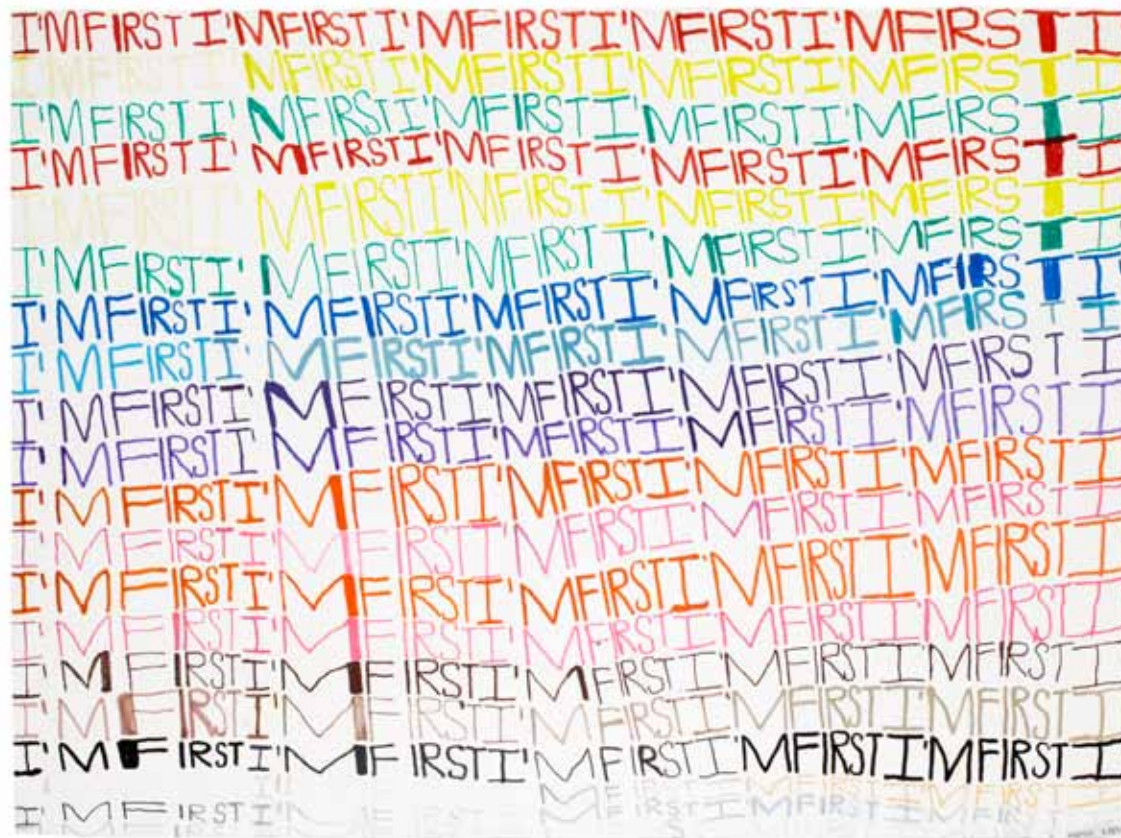 I'M FIRST I'M FIRST I'M FIRST I'M FIRST I'M FIRST I
I'M FIRST I'M FIRST I'M FIRST I'M FIRST I'M FIRST I
I'M FIRST I'M FIRST I'M FIRST I'M FIRST I'M FIRST I
I'M FIRST I'M FIRST I'M FIRST I'M FIRST I'M FIRST I
I'M FIRST I'M FIRST I'M FIRST I'M FIRST I'M FIRST I
I'M FIRST I'M FIRST I'M FIRST I'M FIRST I'M FIRST I
I'M FIRST I'M FIRST I'M FIRST I'M FIRST I'M FIRST I'
I'M FIRST I'M FIRST I'M FIRST I'M FIRST I'M FIRST I
I'M FIRST I'M FIRST I'M FIRST I'M FIRST I'M FIRST I
I'M FIRST I'M FIRST I'M FIRST I'M FIRST I'M FIRST I
I'M FIRST I'M FIRST I'M FIRST I'M FIRST I'M FIRST I
I'M FIRST I'M FIRST I'M FIRST I'M FIRST I'M FIRST I
I'M FIRST I'M FIRST I'M FIRST I'M FIRST I'M FIRST I
I'M FIRST I'M FIRST I'M FIRST I'M FIRST I'M FIRST I
I'M FIRST I'M FIRST I'M FIRST I'M FIRST I'M FIRST I
I'M FIRST I'M FIRST I'M FIRST I'M FIRST I'M FIRST I
I'M FIRST I'M FIRST I'M FIRST I'M FIRST I'M FIRST I
I'M FIRST I'M FIRST I'M FIRST I'M FIRST I'M FIRST I